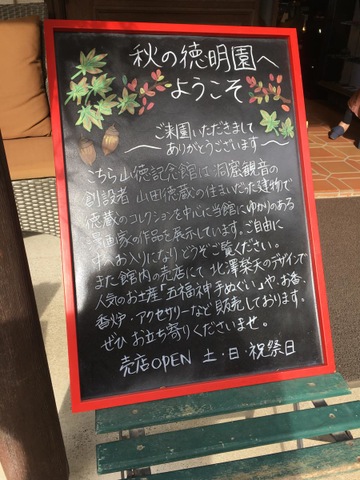 秋の徳明園へ
ようこそ
ご来園いただきまして
ありがとうございます
こちら山徳記念館は洞窟観音の
創設者 山田徳蔵の住まいだった建物で
徳蔵のコレクションを中心に当館にゆかりのある
漫画家の作品を展示しています。ご自由に
中へお入りになりどうぞご覧ください。
また館内の売店にて 北澤楽天のデザインで
人気のお土産「五福神手ぬぐい」や、お香、
香炉・アクセサリーなど販売しております。
ぜひ お立ち寄りくださいませ。
売店OPEN 土・日・祝祭日